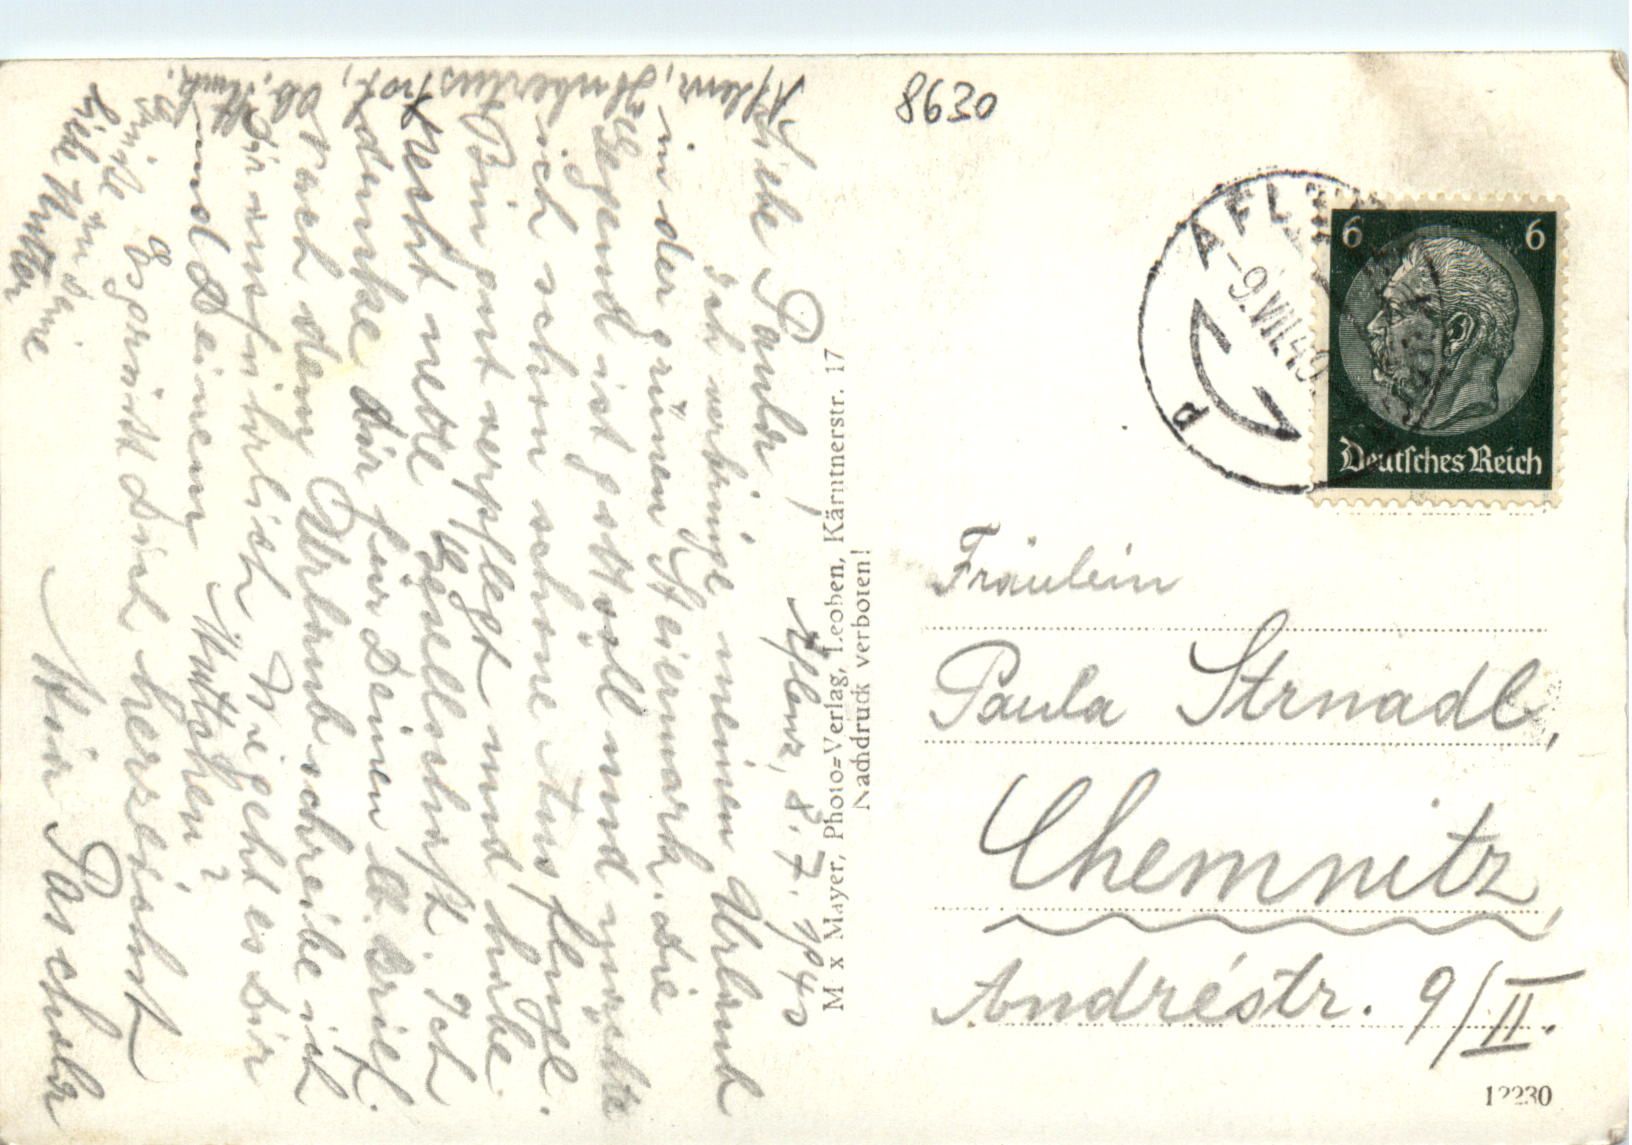 8630
AFLENZ
-9.VII.40
d
6 6
Deutsches Reich
Fräulein
Paula Strnadl,
Chemnitz,
Andréstr. 9/II.
12230
M x Mayer, Photo=Verlag, Leoben, Kärntnerstr. 17
Nachdruck verboten!
Aflenz, 8.7.1940
Liebe Paula!
Ich verbringe meinen Urlaub
in der grünen Steiermark. Die
Gegend ist gottvoll und machte
ich schon schöne Ausflüge.
Bin gut verpflegt und habe
recht nette Gesellschaft. Ich
danke Dir für Deinen lb. Brief.
Nach dem Urlaub schreibe ich
Dir ausführlich. Wie geht es Dir
und Deinem Mutschen?
Es grüsst Dich herzlichst
Min Paschula
Grüsse an Deine
liebe Mutter
Aflenz, Hubertushof,